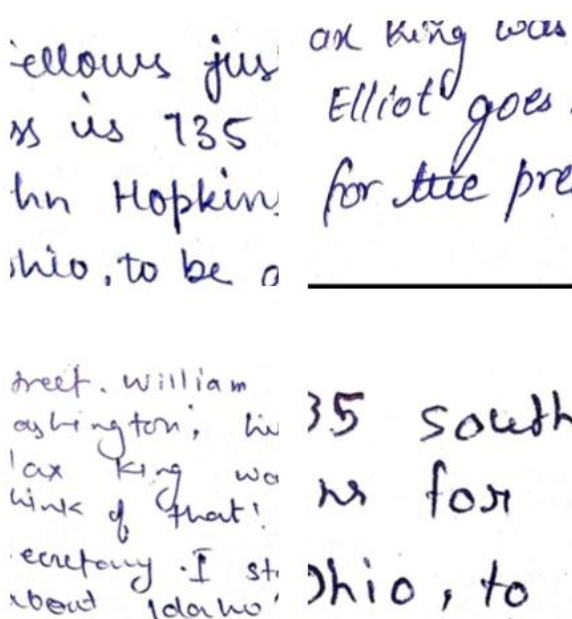 ellows jus
ss is 735
hn Hopkins
hio, to be a
ax king was
Elliot goes
for the pre
treet. William
ashington, his
lax king wa
hink of that!
ecretary. I st
about Idaho
35 south
ns for
Ohio, to